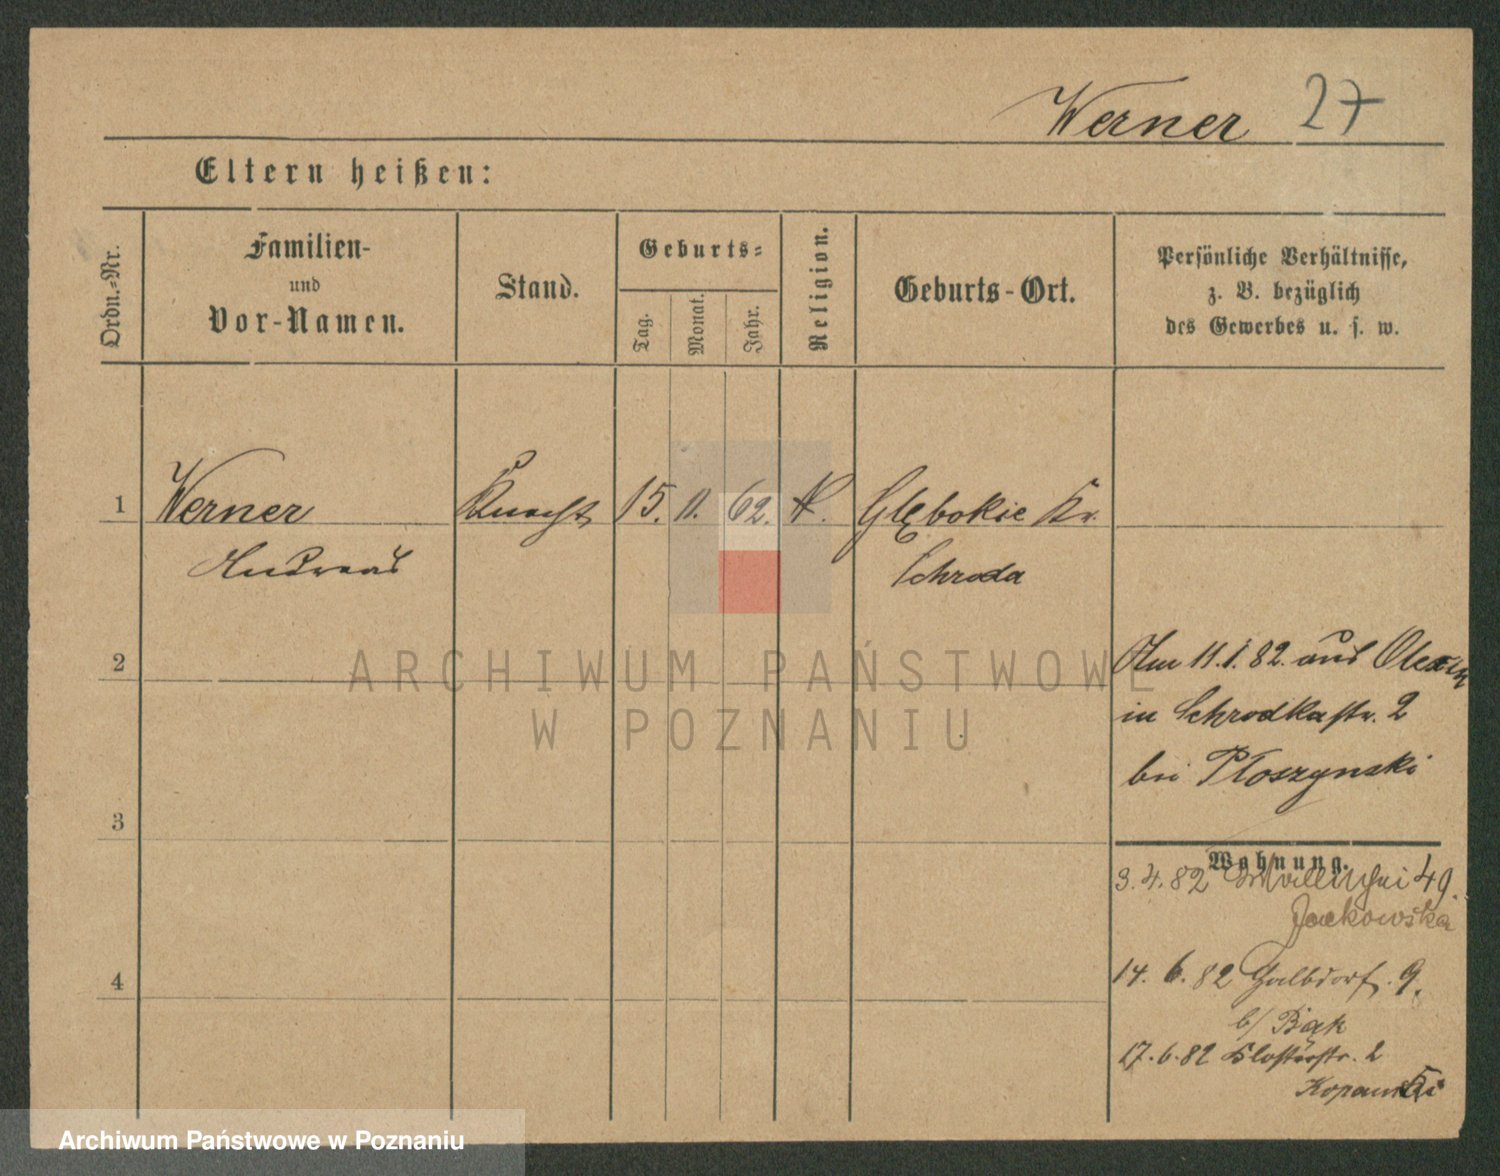 Werner 27
Eltern heißen:
Ordn.-Nr.
Familien-
und
Vor-Namen.
Stand.
Geburts-
Tag.
Monat.
Jahr.
Religion.
Geburts-Ort.
Persönliche Verhältnisse,
z. B. bezüglich
des Gewerbes u. s. w.
1 Werner Knecht 15. 11. 62. K. Głębokie Kr.
Andreas Schroda
2
Am 11.1.82. aus
in Schrodkastr. 2
bei Ploszynski
3
Wohnung.
3. 4. 82 Wallischei 49.
Jackowska
4
14. 6. 82 9.
b/ Bąk
17. 6. 82 Klosterstr. 2
ARCHIWUM PAŃSTWOWE
W POZNANIU
Archiwum Państwowe w Poznaniu